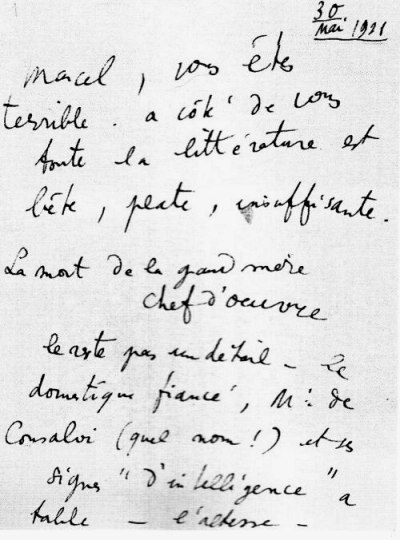 30
mai 1921
Marcel, vous êtes
terrible. a côté de vous
toute la littérature est
bête, plate, insuffisante.
La mort de la grand mère
chef d'oeuvre
le reste pas un détail – le
domestique fiancé, Mr de
Consalvi (quel nom!) et ses
signes "d'intelligence" a
table – l'altesse –